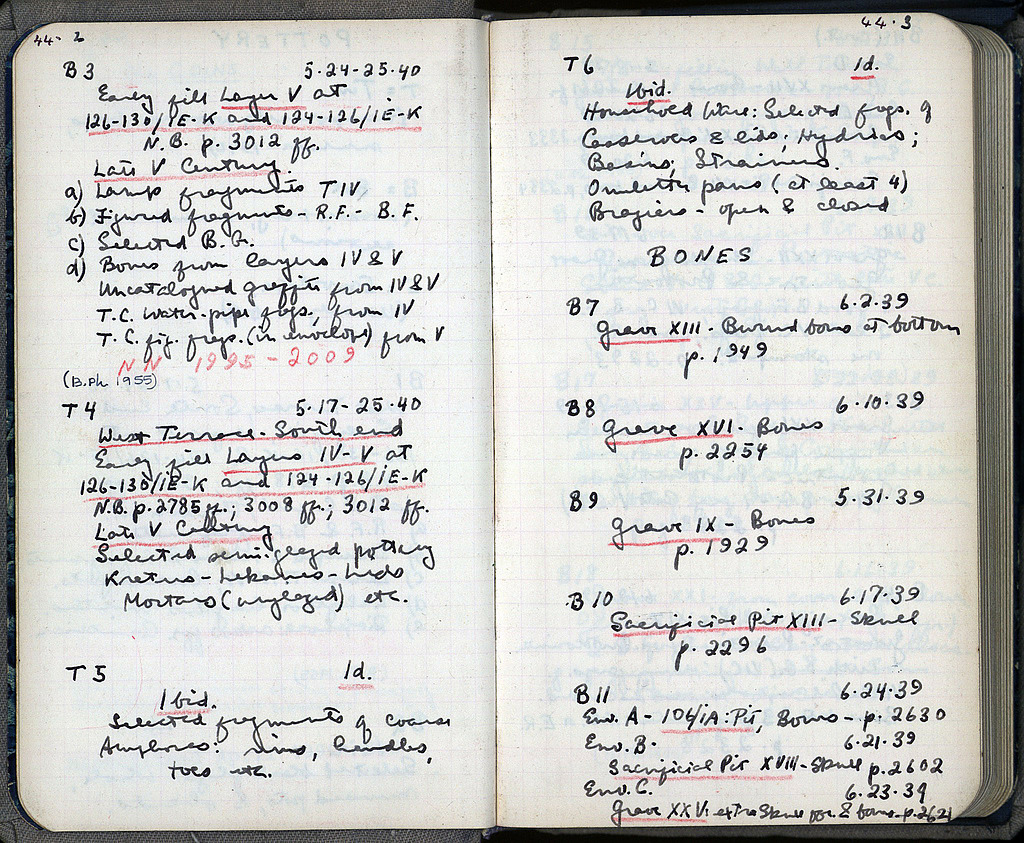 44-2
B3 5·24-25·40
Early fill Layer V at
126-130/ΙΕ-Κ and 124-126/ΙΕ-Κ
N.B. p. 3012 ff.
Late V Century.
a) Lamp fragments T IV
b) Figured fragments - R.F. - B.F.
c) Selected B.G.
d) Bones from layers IV & V
Uncatalogued graffiti from IV & V
T.C. Water-pipe frgs, from IV
T.C. fig. frags. (in envelope) from V
NN 1995-2009
(B.Ph. 1955)
T4 5·17-25·40
West Terrace - South end
Early fill Layers IV-V at
126-130/ΙΕ-Κ and 124-126/ΙΕ-Κ
N.B. p. 2785 ff.; 3008 ff.; 3012 ff.
Late V Century
Selected semi-glazed pottery
Kraters - Lekanes - Lids
Mortars (unglazed) etc.
T5 Id.
Ibid.
Selected fragments of coarse
Amphoras: rims, handles,
toes etc.
44·3
T6 Id.
Ibid.
Household Ware: Selected frags. of
Casseroles & lids; Hydrias;
Basins; Strainers.
Omelette pans (at least 4)
Braziers - open & closed
BONES
B7 6·2·39
Grave XIII - Burned bones at bottom
p. 1949
B8 6·10·39
Grave XVI - Bones
p. 2254
B9 5·31·39
Grave IX - Bones
p. 1929
B10 6·17·39
Sacrificial Pit XIII - Skull
p. 2296
B11 6·24·39
Env. A - 106/ΙΑ: Pit, Bones - p. 2630
Env. B. 6·21·39
Sacrificial Pit XVIII - Skull p. 2602
Env. C. 6·23·39
Grave XXV: extra Skull & bones - p. 2621